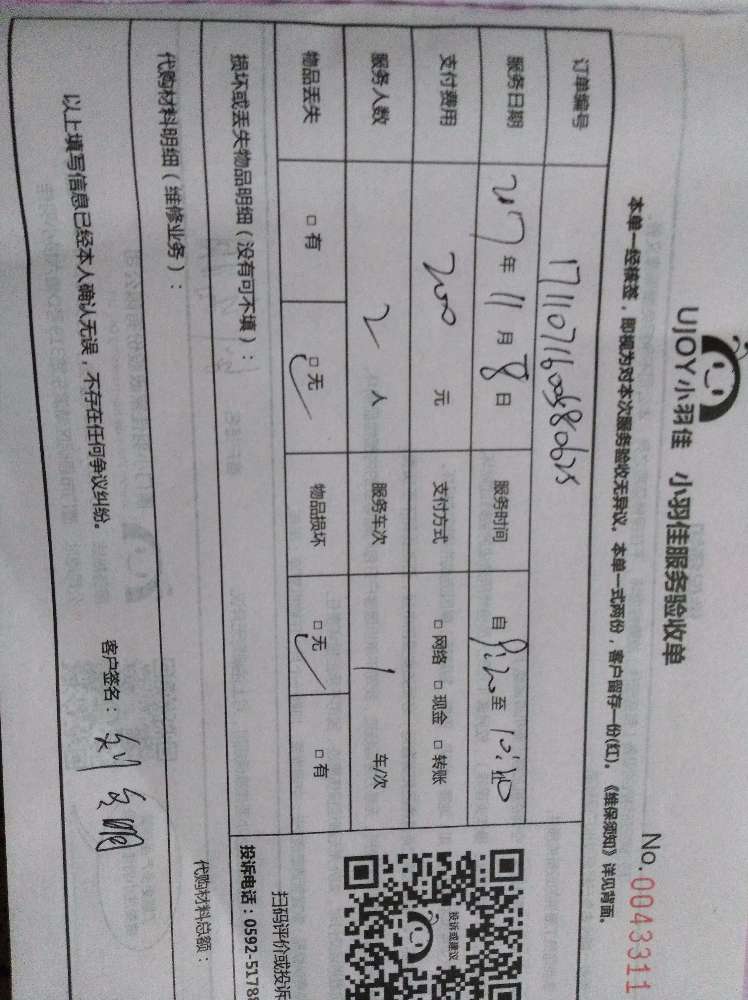 UJOY小羽佳 小羽佳服务验收单
No.0043311
本单一经核签，即视为对本次服务验收无异议。本单一式两份，客户留存一份(红)。《维保须知》详见背面。
订单编号
服务日期 2017年 11月 8日 服务时间 自 8:20 至 10:40
支付费用 200 元 支付方式 □ 网络 □ 现金 □ 转账
服务人数 2 人 服务车次 1 车/次
物品丢失 □ 有 □ 无 ✓ 物品损坏 □ 无 ✓ □ 有
损坏或丢失物品明细（没有可不填）：
投诉或建议
扫码评价或投诉
投诉电话：0592-5178
代购材料明细（维修业务）： 代购材料总额：
以上填写信息已经本人确认无误，不存在任何争议纠纷。 客户签名：